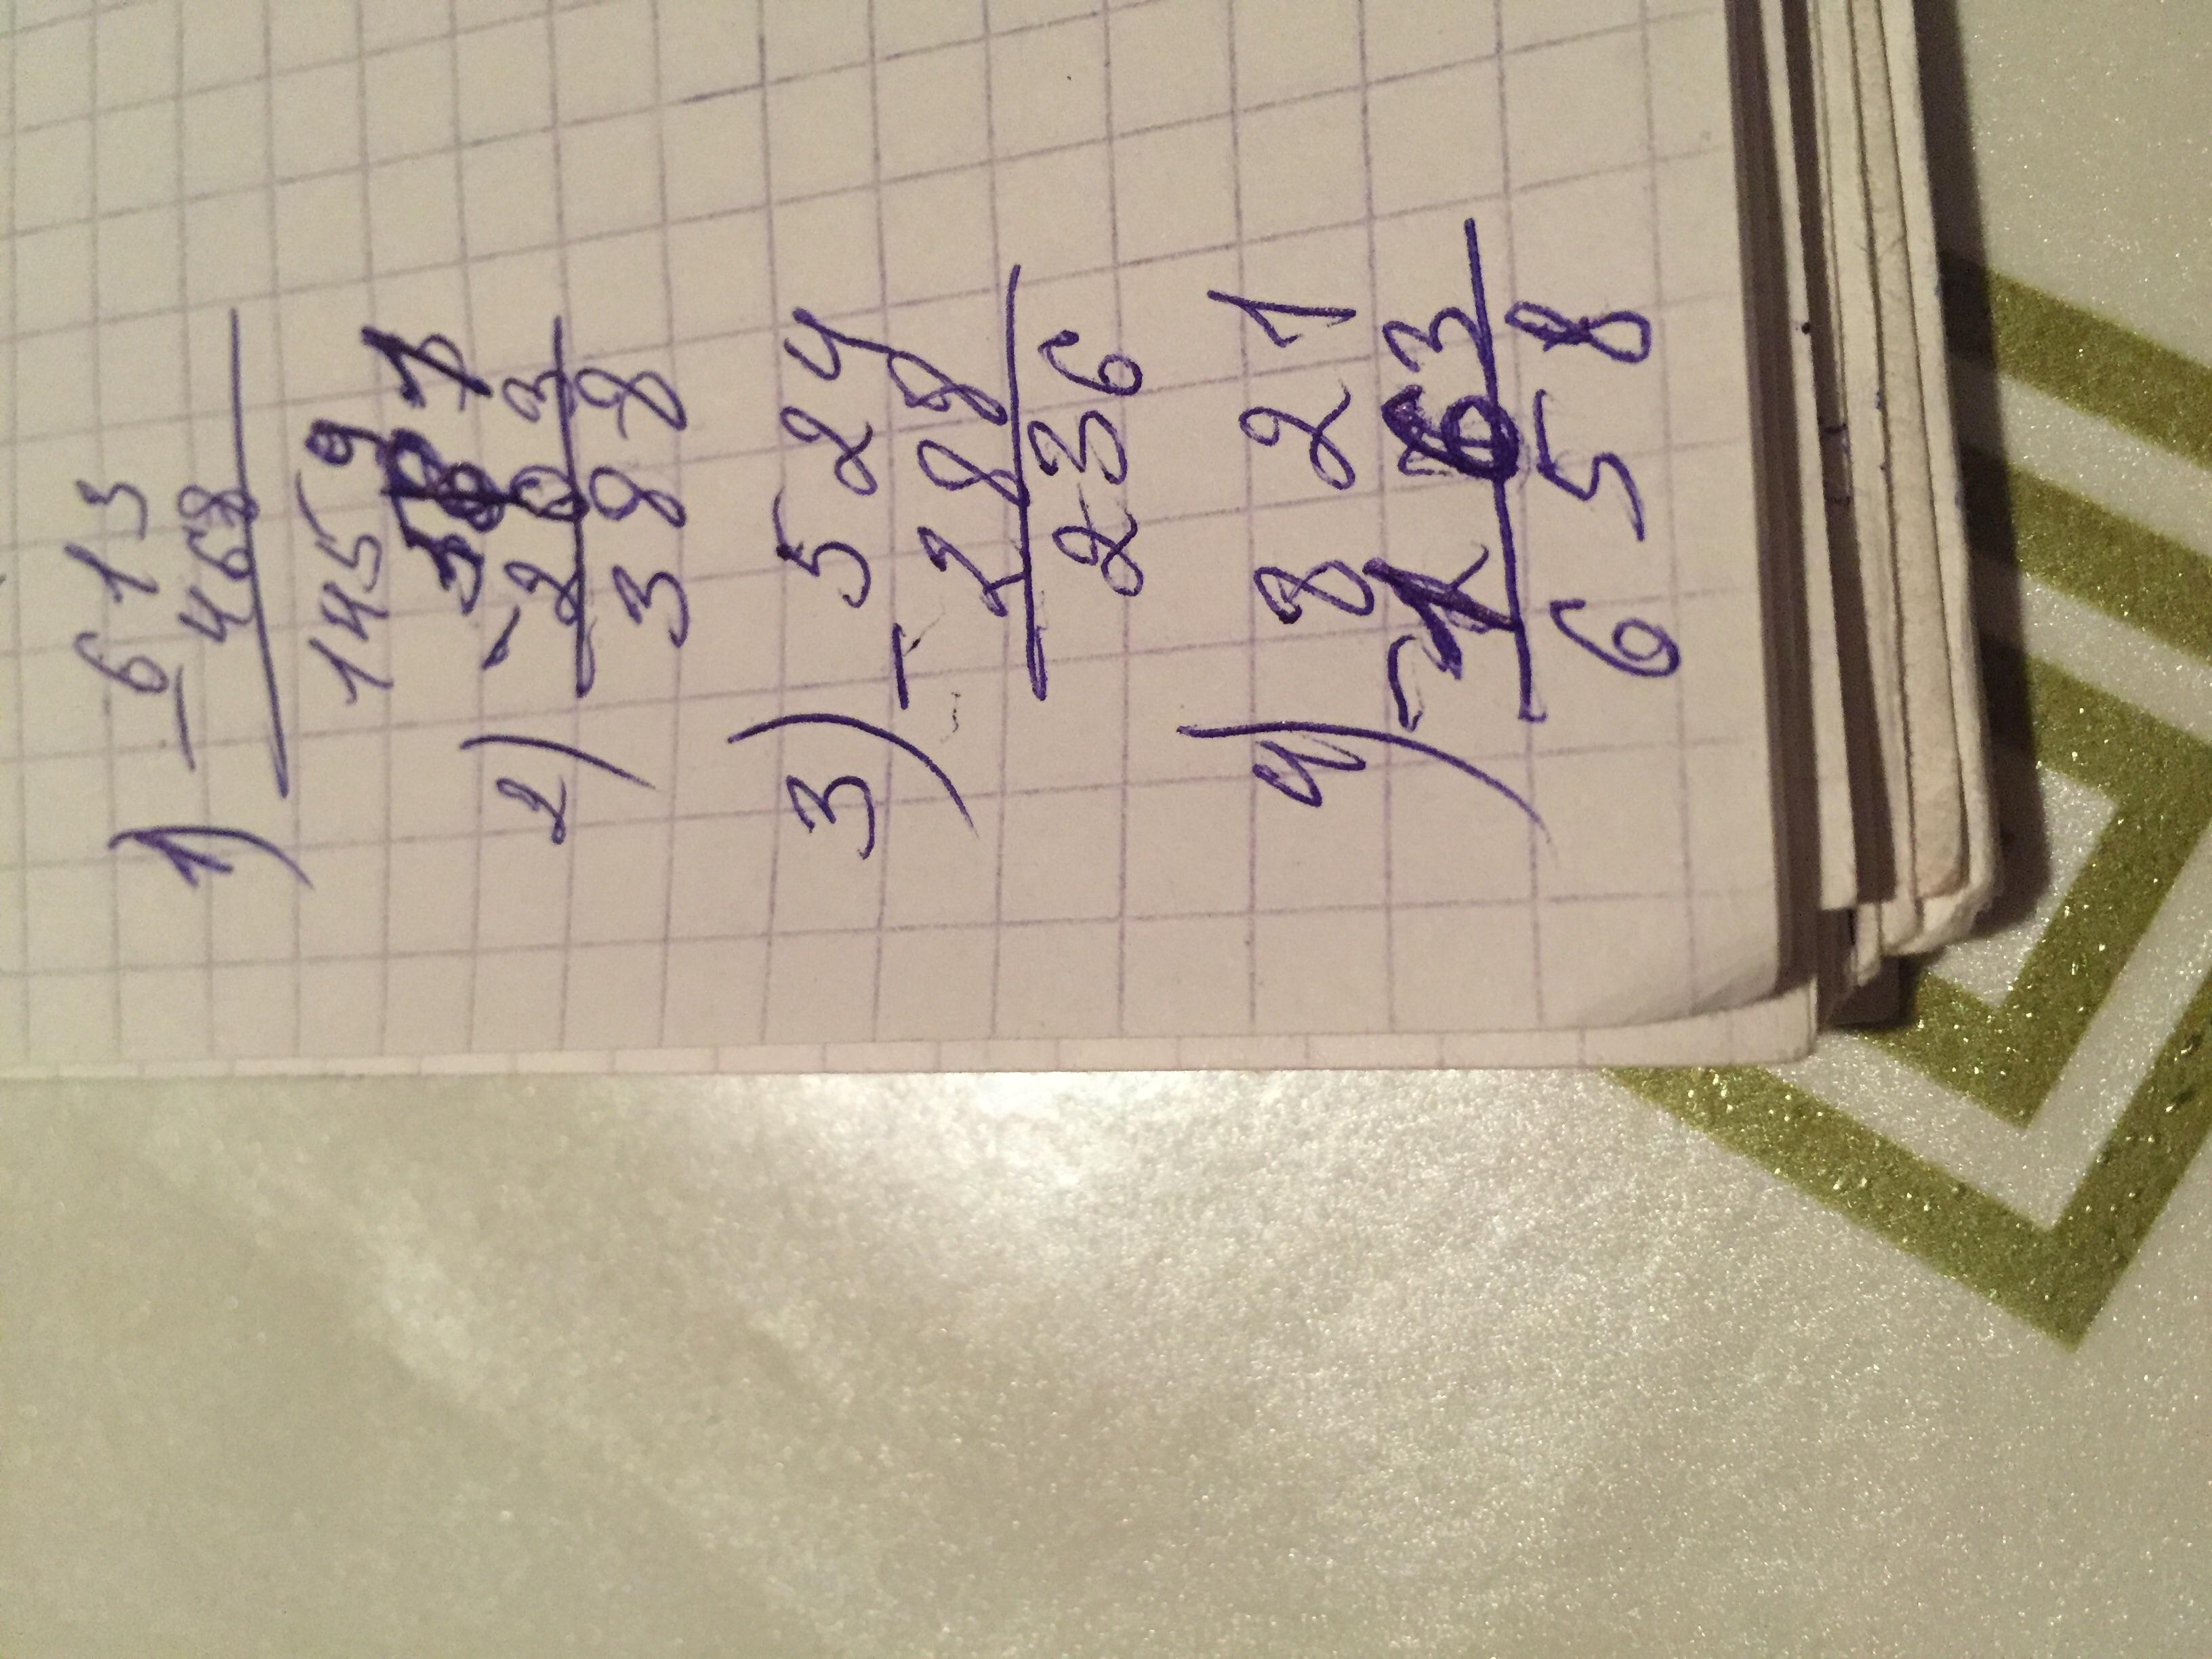 1) 613
- 468
145
2)
- 203
388
3) 524
- 288
236
4) 821
- 263
658